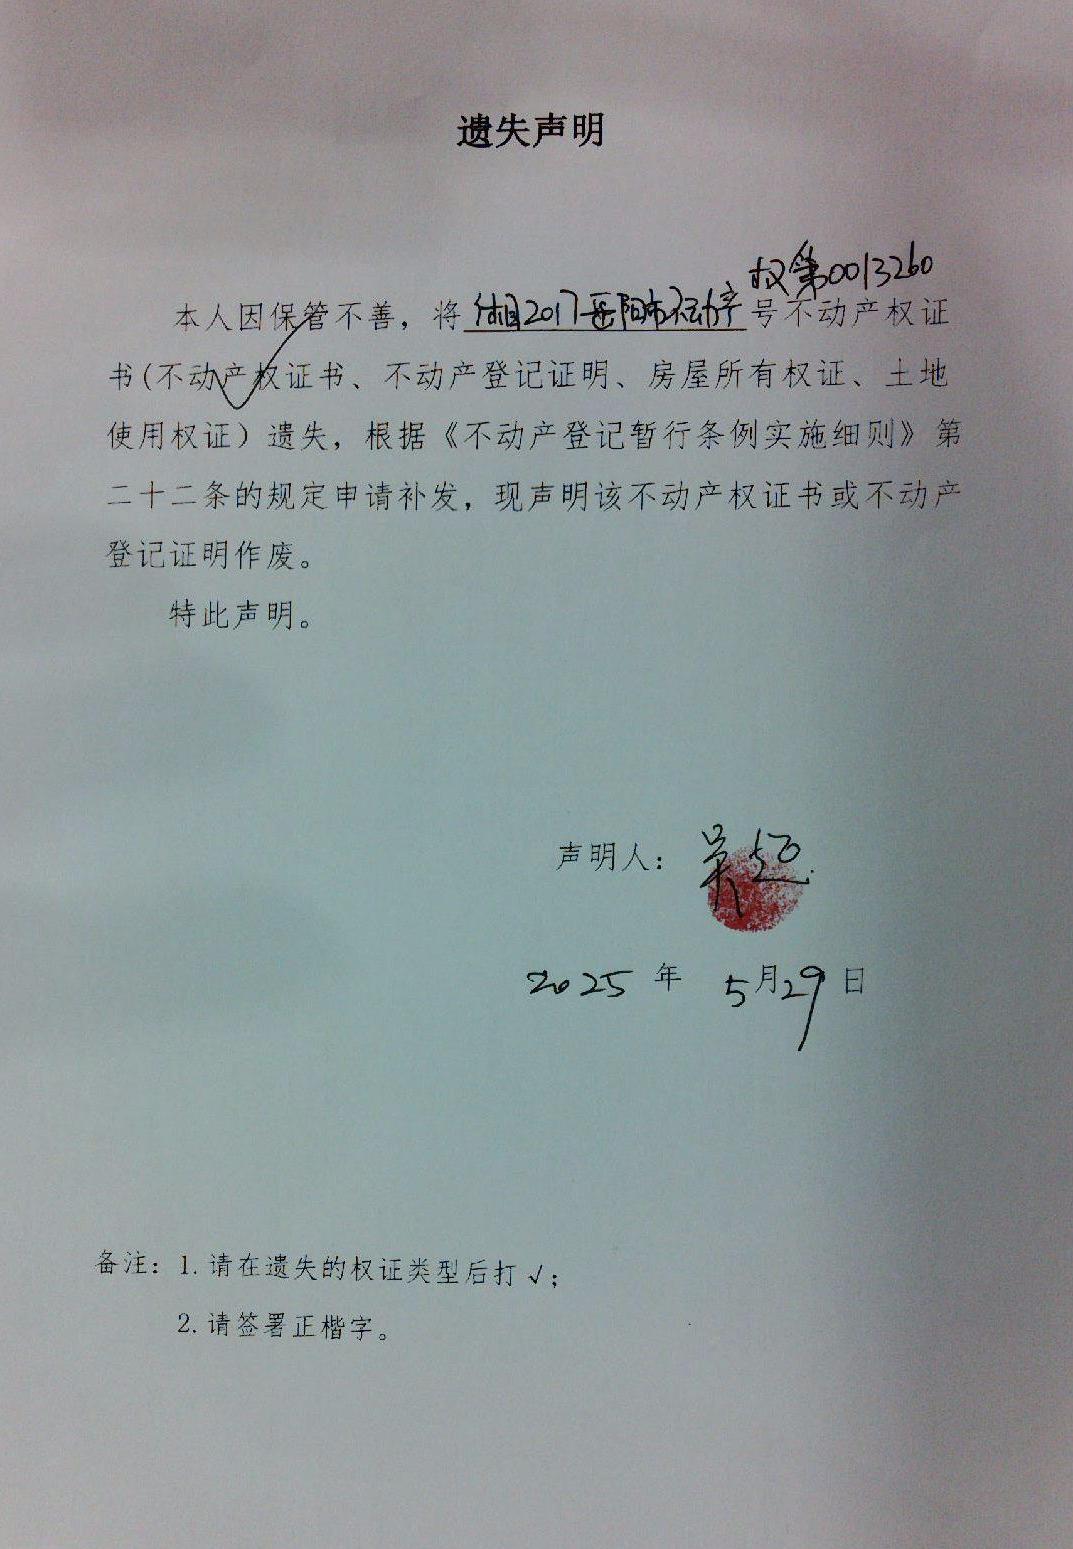 遗失声明
权第0013260
本人因保管不善，将湘2017岳阳市不动产号不动产权证
书(不动产权证书、不动产登记证明、房屋所有权证、土地
使用权证）遗失，根据《不动产登记暂行条例实施细则》第
二十二条的规定申请补发，现声明该不动产权证书或不动产
登记证明作废。
特此声明。
声明人：吴
2025年 5月29日
备注：1.请在遗失的权证类型后打√；
2.请签署正楷字。